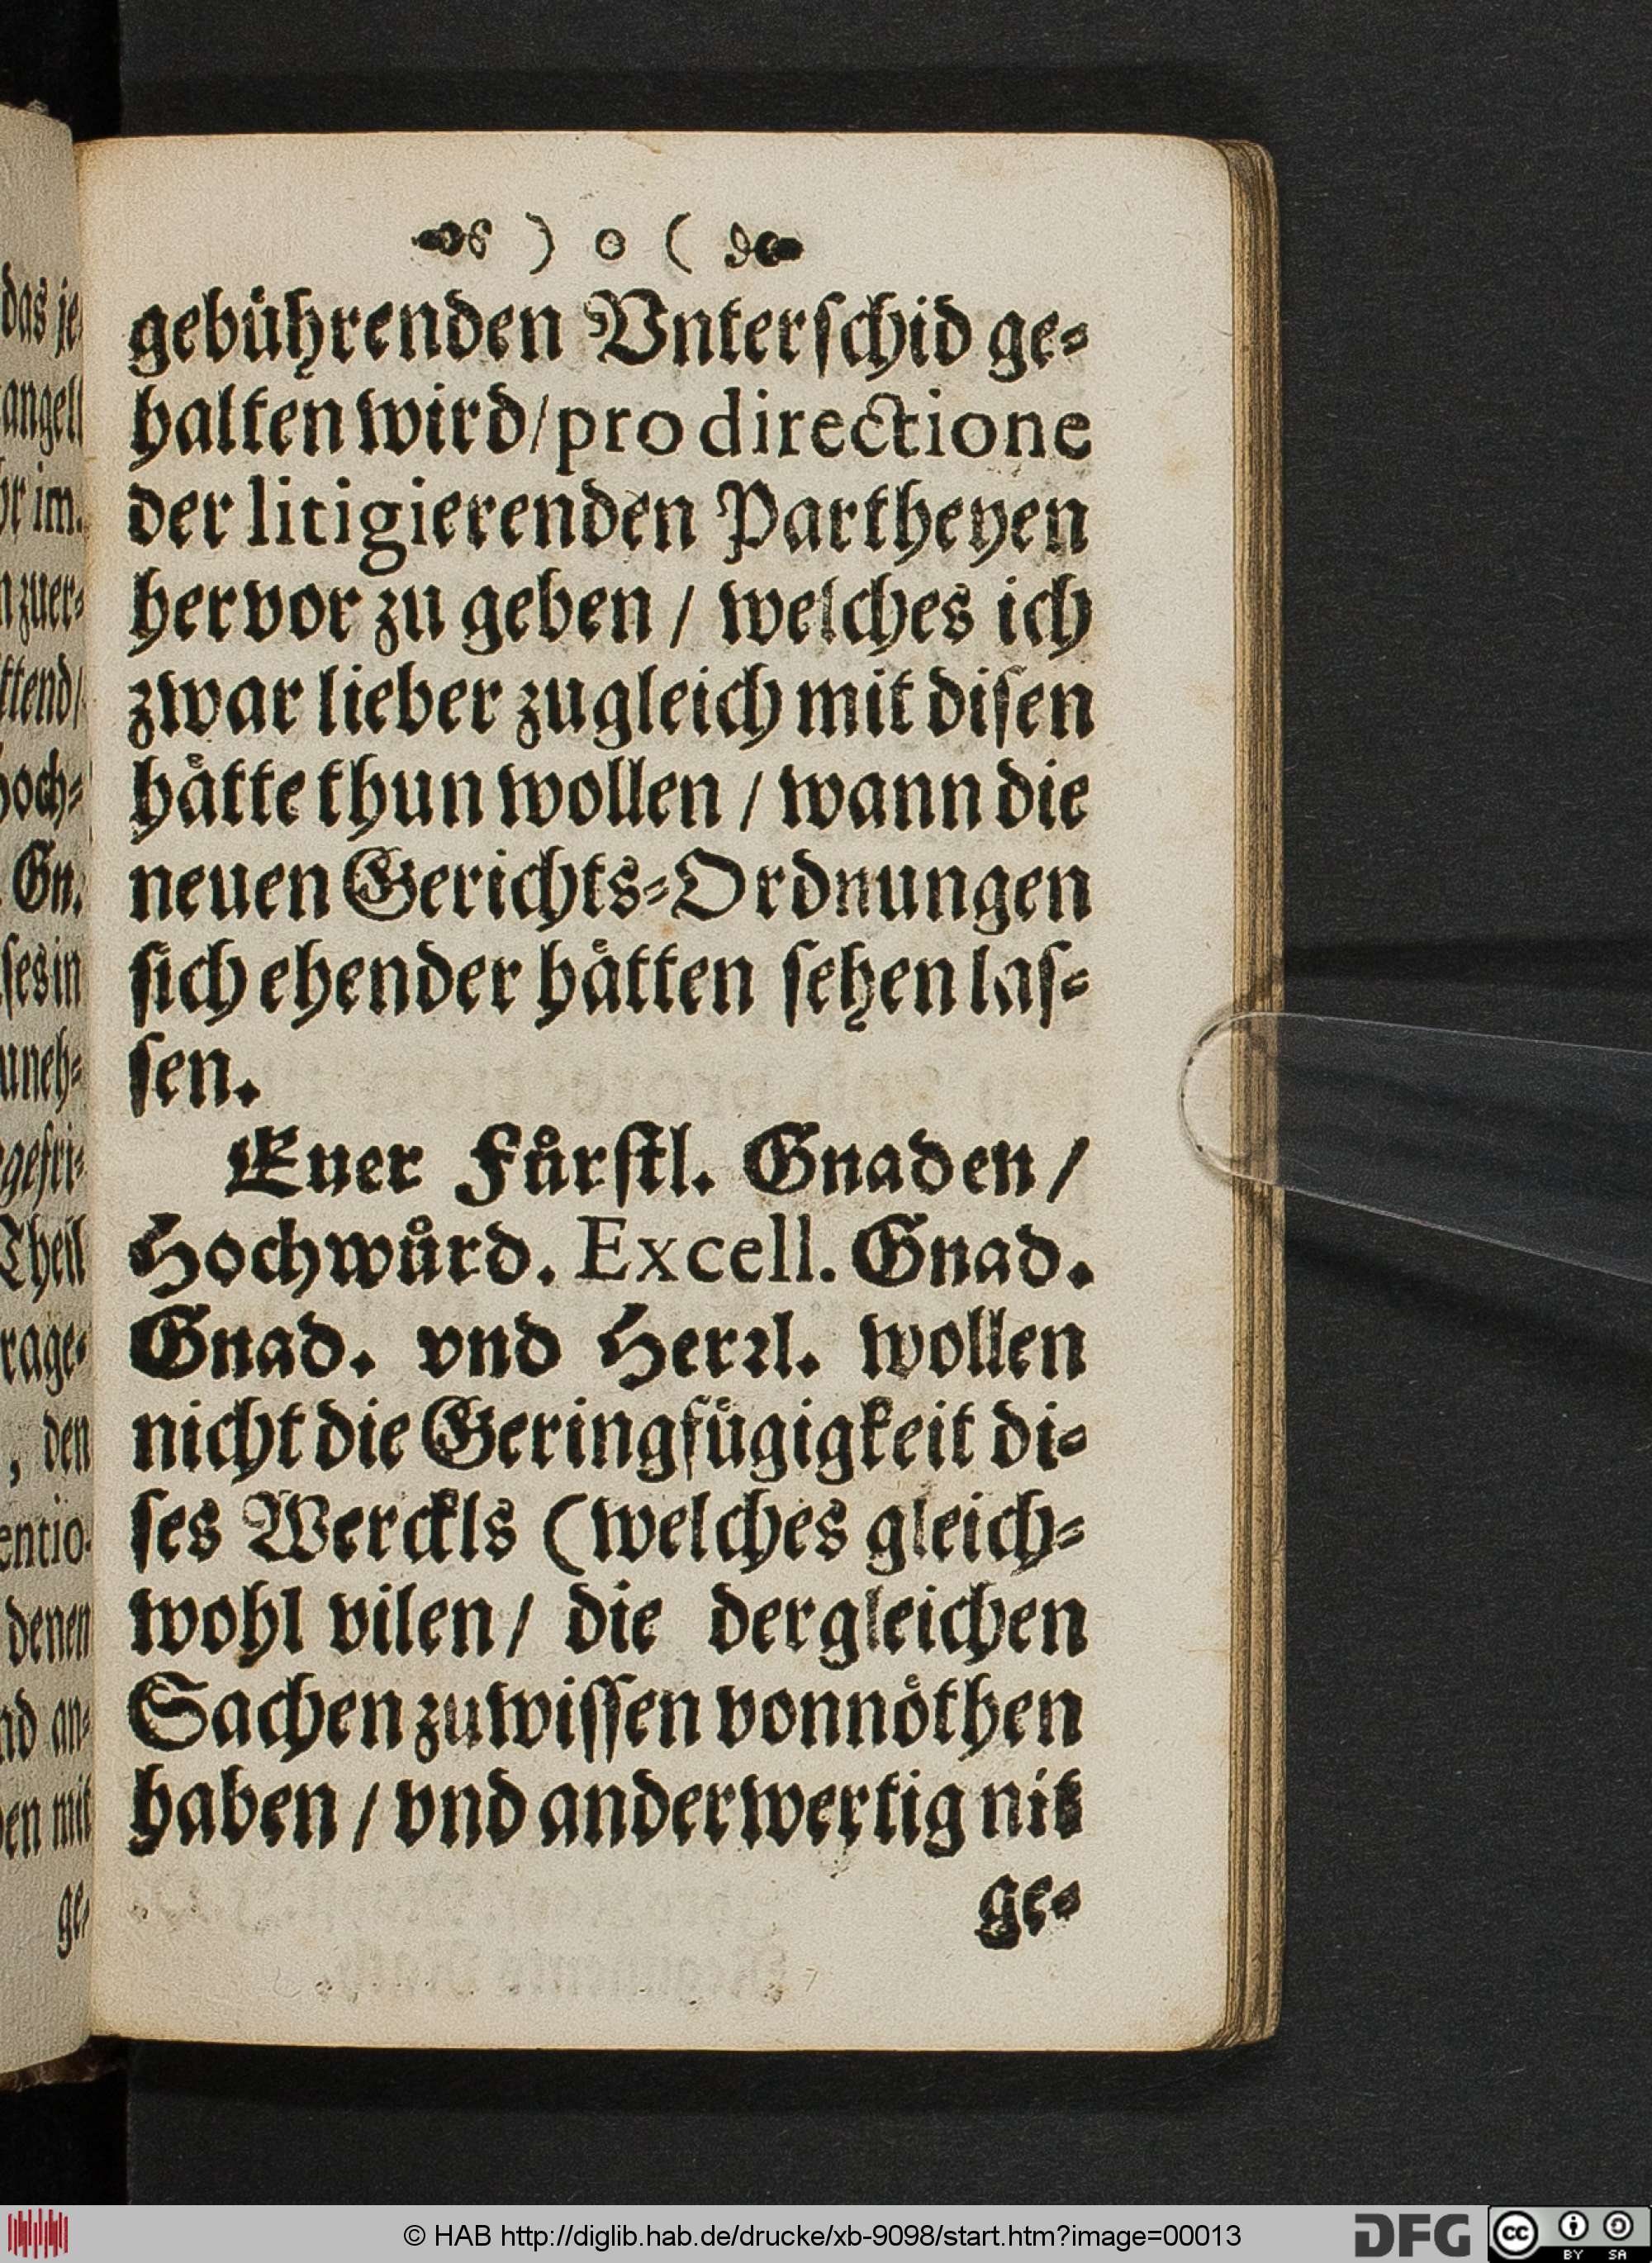 ) o (
gebührenden Vnterſchid ge⸗
halten wird/ pro directione
der litigierenden Partheyen
hervor zu geben / welches ich
zwar lieber zugleich mit diſen
hätte thun wollen / wann die
neuen Gerichts⸗Ordnungen
ſich ehender hätten ſehen laſ⸗
ſen.
Euer Fürſtl. Gnaden /
Hochwürd. Excell. Gnad.
Gnad. vnd Herꝛl. wollen
nicht die Geringfügigkeit di⸗
ſes Werckls (welches gleich⸗
wohl vilen / die dergleichen
Sachen zu wiſſen vonnöthen
haben / vnd anderwertig nit
ge⸗
das je
angel
im.
zuer⸗
ttend/
hoch⸗
Gn.
ſes in
uneh⸗
gefri⸗
Theil
rage⸗
, den
entio-
denen
nd an⸗
en mit
ge⸗
© HAB http://diglib.hab.de/drucke/xb-9098/start.htm?image=00013
DFG
cc
BY SA